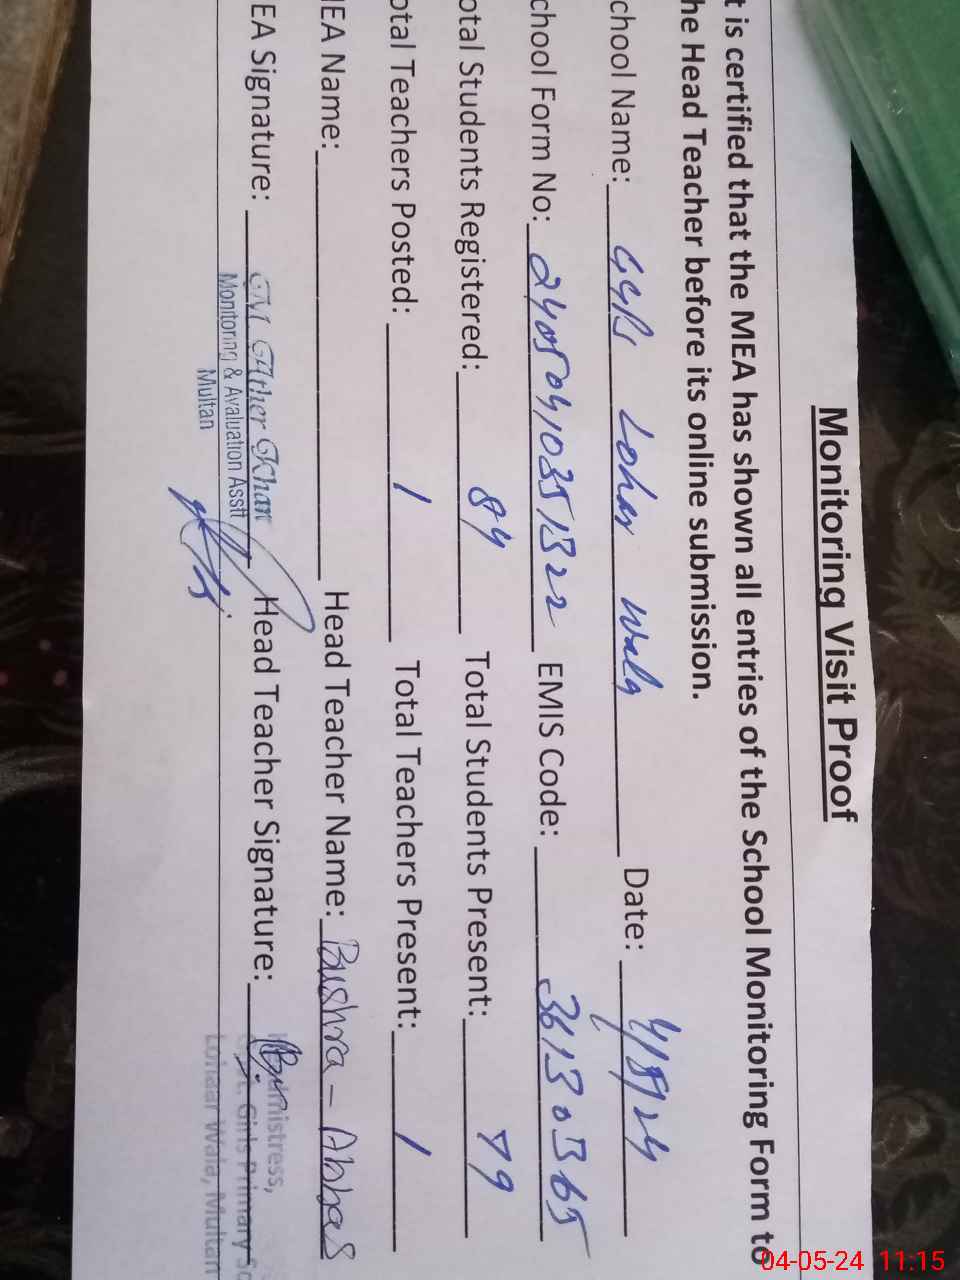 Monitoring Visit Proof
t is certified that the MEA has shown all entries of the School Monitoring Form to
he Head Teacher before its online submission.
chool Name: GGPS Lohar wala Date: 4/5/24
chool Form No: 24050410351322 EMIS Code: 36130365
otal Students Registered: 84 Total Students Present: 79
otal Teachers Posted: 1 Total Teachers Present: 1
EA Name: Head Teacher Name: Bushra - Abbas
EA Signature: M. Ather Khan Head Teacher Signature:
Monitoring & Avaluation Asstt
Multan
mistress,
Girls Primary Sc
Lohaar Wala, Multan
04-05-24 11:15